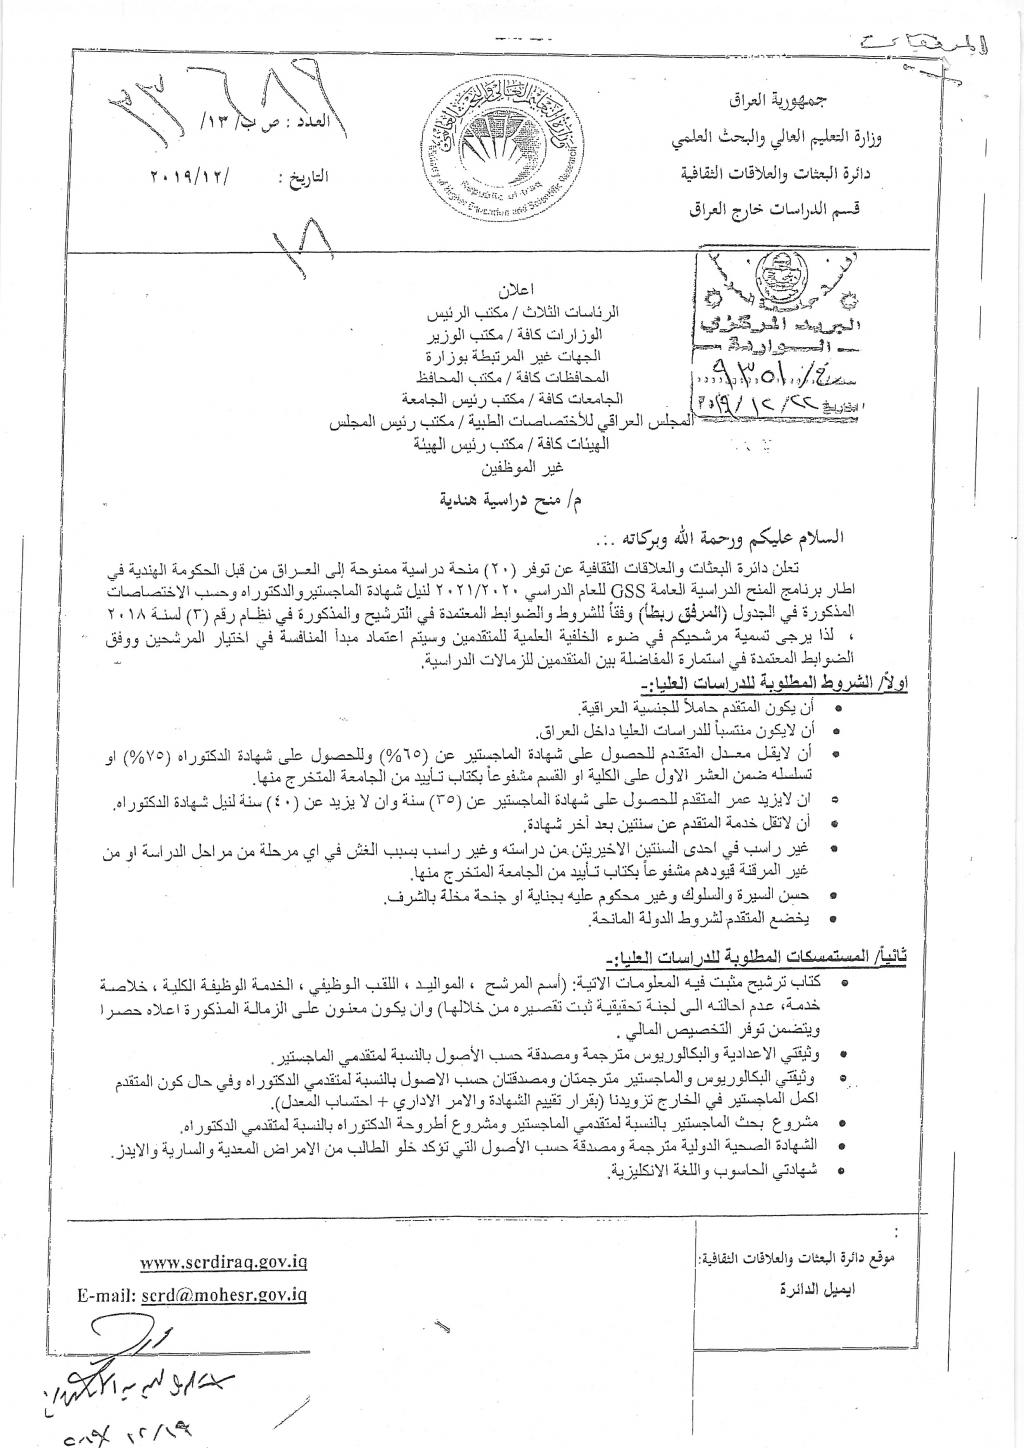 المرفقات
جمهورية العراق
وزارة التعليم العالي والبحث العلمي
دائرة البعثات والعلاقات الثقافية
قسم الدراسات خارج العراق
Republic of Iraq
Ministry of Higher Education and Scientific Research
العدد : ص ب/ ١٣/ ٣٣٦٨٩
التاريخ : ١٨ /٢٠١٩/١٢
البريد المركزي
الواردة
التاريخ ٢٠١٩/١٢/٢٢
اعلان
الرئاسات الثلاث / مكتب الرئيس
الوزارات كافة / مكتب الوزير
الجهات غير المرتبطة بوزارة
المحافظات كافة / مكتب المحافظ
الجامعات كافة / مكتب رئيس الجامعة
المجلس العراقي للأختصاصات الطبية / مكتب رئيس المجلس
الهيئات كافة / مكتب رئيس الهيئة
غير الموظفين
م/ منح دراسية هندية
السلام عليكم ورحمة الله وبركاته .:.
تعلن دائرة البعثات والعلاقات الثقافية عن توفر (٢٠) منحة دراسية ممنوحة إلى العراق من قبل الحكومة الهندية في
اطار برنامج المنح الدراسية العامة GSS للعام الدراسي ٢٠٢١/٢٠٢٠ لنيل شهادة الماجستيروالدكتوراه وحسب الاختصاصات
المذكورة في الجدول (المرفق ربطاً) وفقاً للشروط والضوابط المعتمدة في الترشيح والمذكورة في نظام رقم (٣) لسنة ٢٠١٨
، لذا يرجى تسمية مرشحيكم في ضوء الخلفية العلمية للمتقدمين وسيتم اعتماد مبدأ المنافسة في اختيار المرشحين ووفق
الضوابط المعتمدة في استمارة المفاضلة بين المتقدمين للزمالات الدراسية.
اولاً/ الشروط المطلوبة للدراسات العليا:-
• أن يكون المتقدم حاملاً للجنسية العراقية.
• أن لايكون منتسباً للدراسات العليا داخل العراق.
• أن لايقل معدل المتقدم للحصول على شهادة الماجستير عن (٦٥%) وللحصول على شهادة الدكتوراه (٧٥%) او
تسلسله ضمن العشر الاول على الكلية او القسم مشفوعاً بكتاب تأييد من الجامعة المتخرج منها.
• ان لايزيد عمر المتقدم للحصول على شهادة الماجستير عن (٣٥) سنة وان لا يزيد عن (٤٠) سنة لنيل شهادة الدكتوراه.
• أن لاتقل خدمة المتقدم عن سنتين بعد أخر شهادة.
• غير راسب في احدى السنتين الاخيريتن من دراسته وغير راسب بسبب الغش في اي مرحلة من مراحل الدراسة او من
غير المرقنة قيودهم مشفوعاً بكتاب تأييد من الجامعة المتخرج منها.
• حسن السيرة والسلوك وغير محكوم عليه بجناية او جنحة مخلة بالشرف.
• يخضع المتقدم لشروط الدولة المانحة.
ثانياً/ المستمسكات المطلوبة للدراسات العليا:-
• كتاب ترشيح مثبت فيه المعلومات الاتية: (أسم المرشح ، المواليد، اللقب الوظيفي ، الخدمة الوظيفة الكلية ، خلاصة
خدمة، عدم احالته الى لجنة تحقيقية ثبت تقصيره من خلالها) وان يكون معنون على الزمالة المذكورة اعلاه حصرا
ويتضمن توفر التخصيص المالي .
• وثيقتي الاعدادية والبكالوريوس مترجمة ومصدقة حسب الأصول بالنسبة لمتقدمي الماجستير.
• وثيقتي البكالوريوس والماجستير مترجمتان ومصدقتان حسب الاصول بالنسبة لمتقدمي الدكتوراه وفي حال كون المتقدم
اكمل الماجستير في الخارج تزويدنا (بقرار تقييم الشهادة والامر الاداري + احتساب المعدل).
• مشروع بحث الماجستير بالنسبة لمتقدمي الماجستير ومشروع أطروحة الدكتوراه بالنسبة لمتقدمي الدكتوراه.
• الشهادة الصحية الدولية مترجمة ومصدقة حسب الأصول التي تؤكد خلو الطالب من الامراض المعدية والسارية والايدز.
• شهادتي الحاسوب واللغة الانكليزية.
موقع دائرة البعثات والعلاقات الثقافية:
www.scrdiraq.gov.iq
ايميل الدائرة
E-mail: scrd@mohesr.gov.iq